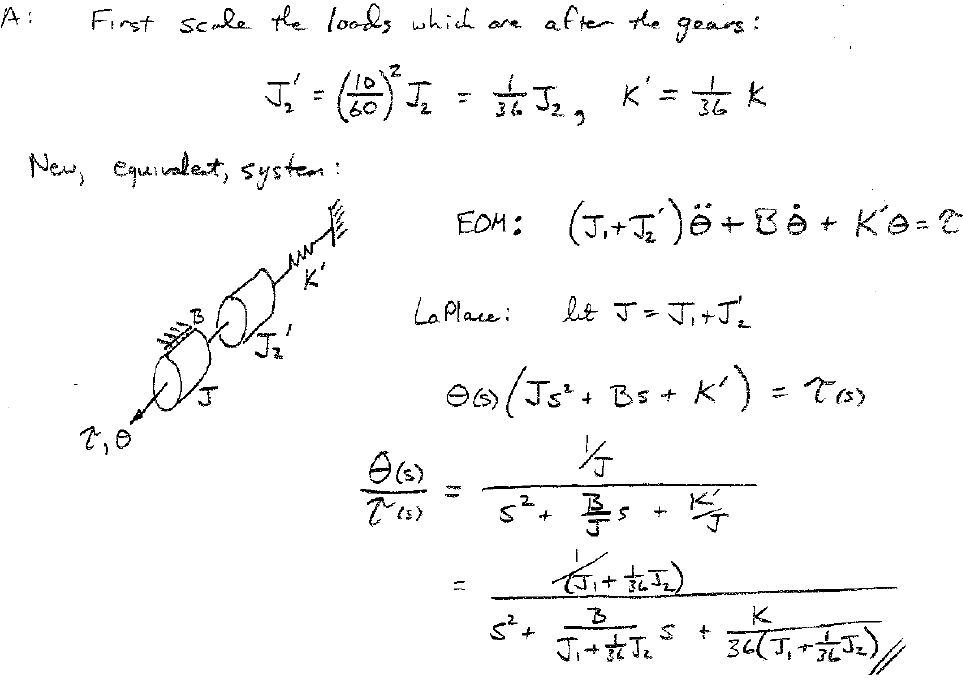 A: First scale the loads which are after the gears:
J₂' = (10/60)² J₂ = 1/36 J₂, K' = 1/36 K
New, equivalent, system:
EOM: (J₁+J₂')θ̈ + Bθ̇ + K'θ = τ
K'
B
J₂'
J
τ, θ
LaPlace: let J = J₁ + J₂'
Θ(s) (Js² + Bs + K') = τ(s)
Θ(s)/τ(s) = (1/J) / (s² + B/J s + K'/J)
= (1/(J₁ + 1/36 J₂)) / (s² + B/(J₁ + 1/36 J₂) s + K/(36(J₁ + 1/36 J₂))) //